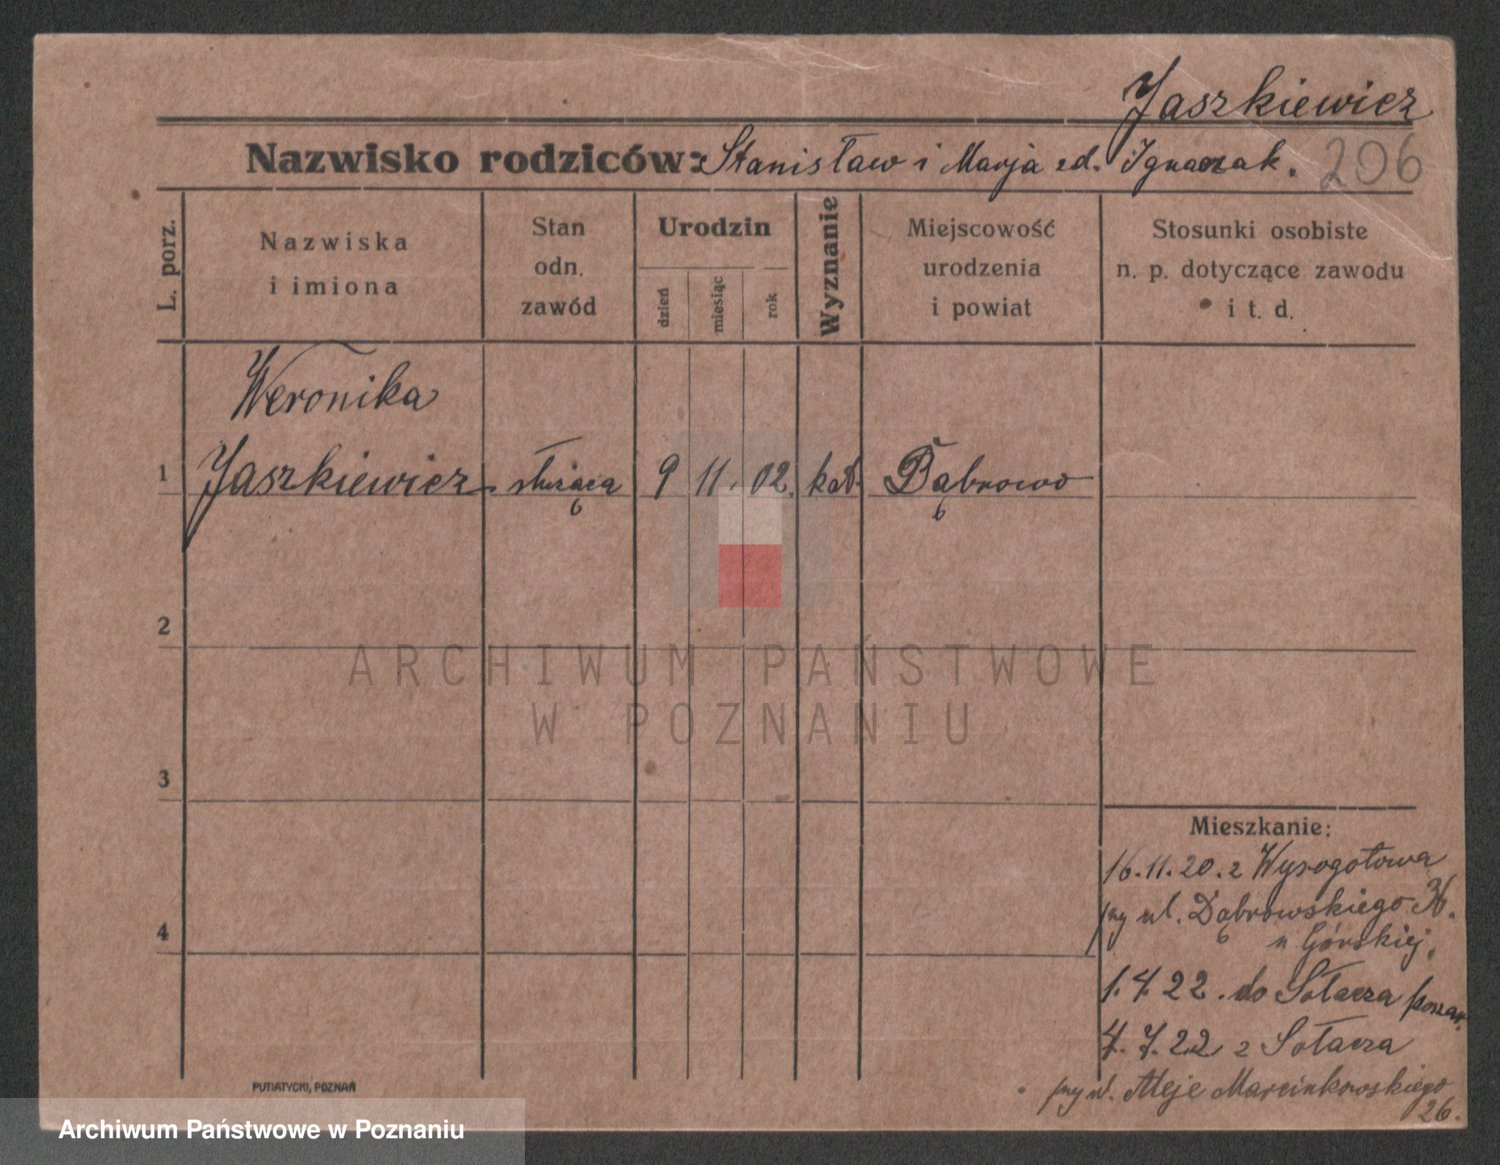 Jaszkiewicz
Nazwisko rodziców: Stanisław i Marja ed. Ignaczak. 206
L. porz.
Nazwiska
i imiona
Stan
odn.
zawód
Urodzin
dzień
miesiąc
rok
Wyznanie
Miejscowość
urodzenia
i powiat
Stosunki osobiste
n. p. dotyczące zawodu
i t. d.
Weronika
1 Jaszkiewicz służąca 9 11. 02. kat. Dąbrowo
2
ARCHIWUM PAŃSTWOWE
W POZNANIU
3
4
Mieszkanie:
16.11.20. z Wysogotowa
przy ul. Dąbrowskiego 36.
u Górskiej.
1.4.22. do Sołacza
4.7.22 z Sołacza
przy ul. Aleje Marcinkowskiego
26.
PUTIATYCKI, POZNAŃ
Archiwum Państwowe w Poznaniu